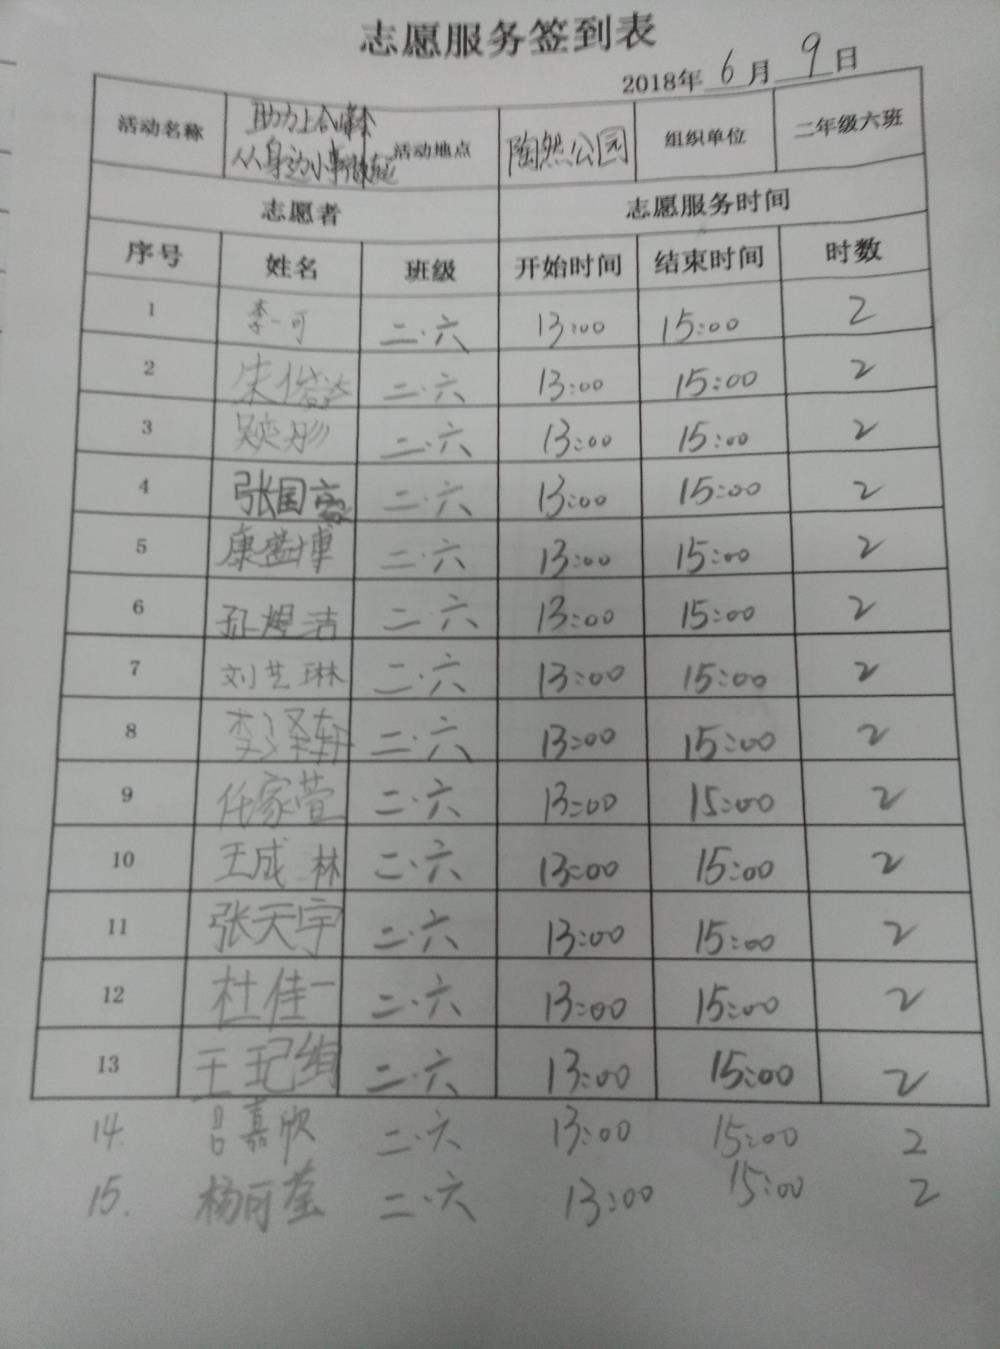 志愿服务签到表
2018年 6 月 9 日
活动名称 助力上合峰会 从身边小事做起 活动地点 陶然公园 组织单位 二年级六班
志愿者 志愿服务时间
序号 姓名 班级 开始时间 结束时间 时数
1 李一可 二·六 13:00 15:00 2
2 宋俊 二·六 13:00 15:00 2
3 二·六 13:00 15:00 2
4 张国豪 二·六 13:00 15:00 2
5 康益博 二·六 13:00 15:00 2
6 孙煜洁 二·六 13:00 15:00 2
7 刘芝琳 二·六 13:00 15:00 2
8 李泽轩 二·六 13:00 15:00 2
9 任家萱 二·六 13:00 15:00 2
10 王成林 二·六 13:00 15:00 2
11 张天宇 二·六 13:00 15:00 2
12 杜佳一 二·六 13:00 15:00 2
13 王玘绚 二·六 13:00 15:00 2
14. 吕嘉欣 二·六 13:00 15:00 2
15. 杨可莹 二·六 13:00 15:00 2